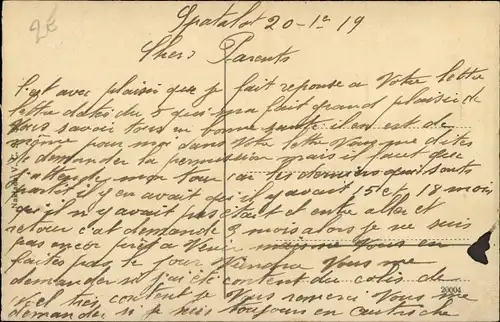 2€
Spatalot 20-1er 19
Chers Parents
C'est avec plaisir que je fait reponse a Votre lettre
lettre datés du 5 qui ma fait grand plaisir de
Vous savoir tous en bonne santé il en est de
même pour moi dans Votre lettre Vous me dites
de demander la permission mais il faut que
j'attende mon tour car les derniers qui sont
partis il y en avait qui il y avait 15 et 18 mois
qu'il n'y avait pas etait et entre aller et
retour c'at demande 3 mois alors je ne suis
pas encor prêt a Venir Vous en
faites pas le jour Viendra Vous me
demander si j'ai été content du colis de
Noel très content je Vous remerci Vous me
demander si je suis toujours en Autriche
20004